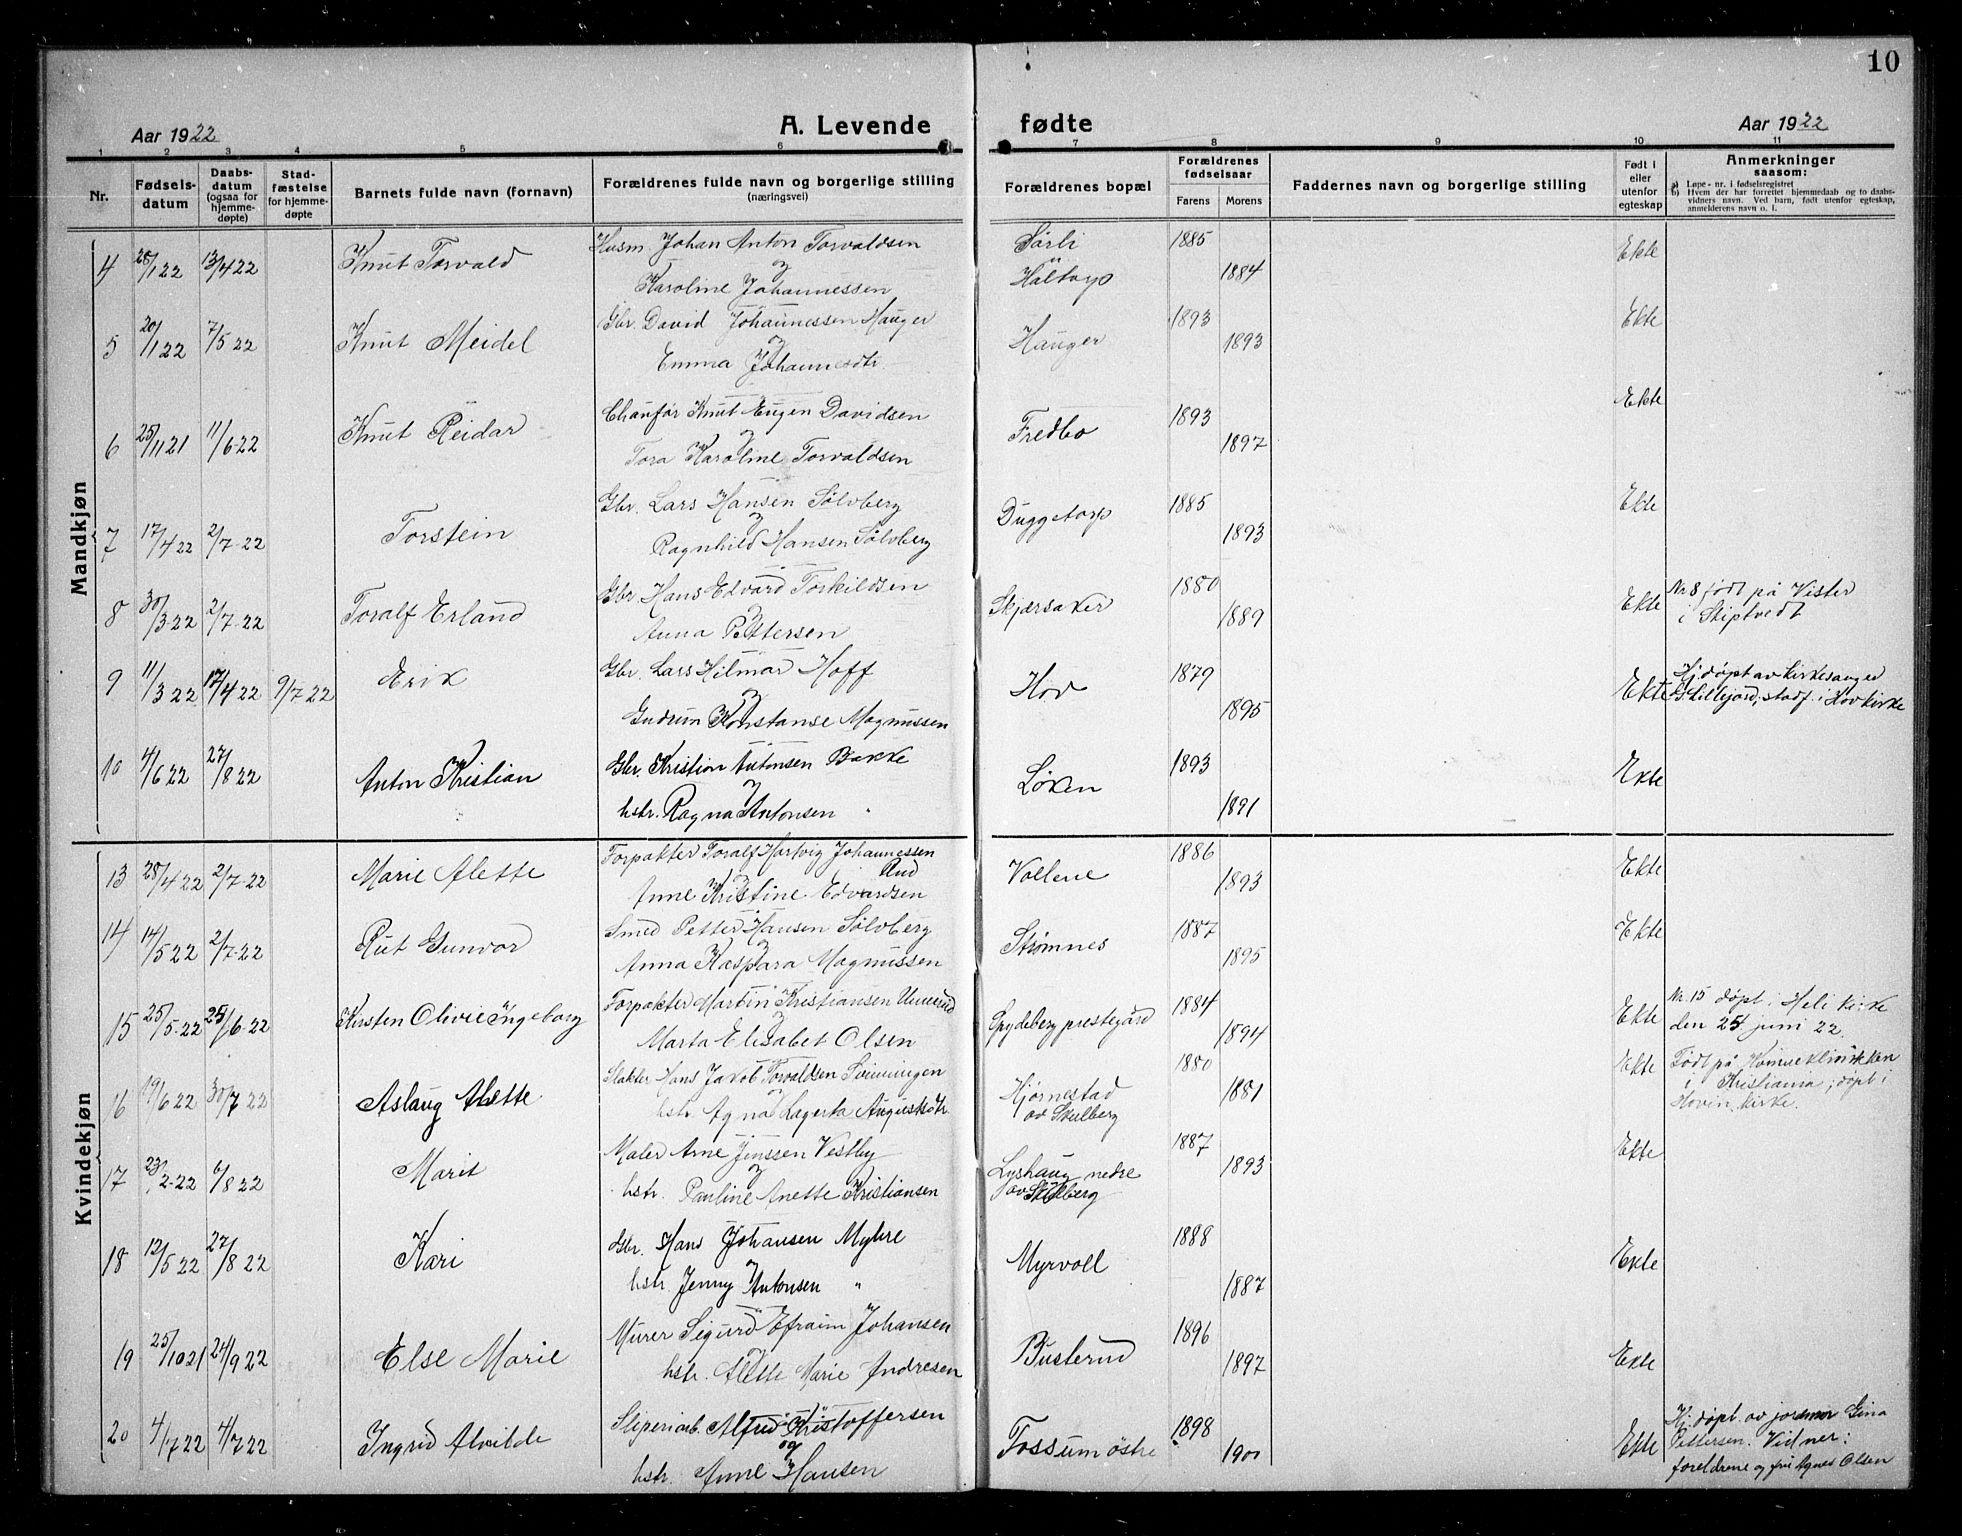 10
Aar 1922 A. Levende fødte Aar 1922
1 2 3 4 5 6 7 8 9 10 11
Nr. Fødselsdatum Daabsdatum (ogsaa for hjemmedøpte) Stadfæstelse for hjemmedøpte Barnets fulde navn (fornavn) Forældrenes fulde navn og borgerlige stilling (næringsvei) Forældrenes bopæl Forældrenes fødselsaar Farens Morens Faddernes navn og borgerlige stilling Født i eller utenfor egteskap Anmerkninger saasom:
a) Løpe-nr. i fødselsregistret
b) Hvem der har forrettet hjemmedaab og to daabsvidners navn. Ved barn, født utenfor egteskap, anmelderens navn o. l.
Mandkjøn
4 28/1 22 13/4 22 Knut Torvald Husm. Johan Anton Torvaldsen Sørli 1885 Ekte
og
Karoline Johannessen Haltorp 1884
5 20/1 22 7/5 22 Knut Meidel Gbr. David Johannessen Hauger Hauger 1893 Ekte
og
Emma Johannesdtr. 1893
6 25/11 21 11/6-22 Knut Reidar Chaufør Knut Eugen Davidsen Fredbo 1893 Ekte
og
Tora Karoline Torvaldsen 1897
7 17/4 22 2/7-22 Torstein Gbr. Lars Hansen Sølvberg Duggetorp 1885 Ekte
og
Ragnhild Hansen Sølvberg 1893
8 30/3-22 2/7-22 Toralf Erland Gbr. Hans Edvard Torkildsen Skjærsaker 1880 Ekte Nr 8 født på Vister
i Skiptvedt
og
Anna Pettersen 1889
9 11/3 22 17/4 22 9/7 22 Erik Gbr. Lars Hilmar Hoff Hov 1879 Ekte Hj. døpt av kirkesanger
G. Lillejord, stadf. i Hov kirke
og
Gudrun Konstanse Magnussen 1895
10 4/6 22 27/8 22 Anton Kristian Gbr. Kristian Antonsen Bakke Løken 1893 Ekte
og
hstr. Ragna Antonsen " 1891
Kvindekjøn
13 28/4 22 2/7-22 Marie Alette Forpakter Toralf Hartvig Johannessen Rud Vollene 1886 Ekte
og
Anne Kristine Edvardsen 1893
14 14/5 22 2/7-22 Rut Gunvor Smed Petter Hansen Sølvberg Strømnes 1887 Ekte
og
Anna Kaspara Magnussen 1895
15 25/5-22 25/6-22 Kirsten Olivie Ingeborg Forpakter Martin Kristiansen Spydeberg prestegård 1884 Ekte Nr. 15 døpt i Heli kirke
den 25 juni 22.
og
Marta Elisabet Olsen 1894
16 19/6 22 30/7 22 Aslaug Alette Slakter Hans Jakob Torvaldsen Svinningen Hjørnestad 1880 Ekte Født på Kvinneklinikken
i Kristiania; døpt i
Hovin kirke.
hstr. Agna Lagerta Augustsdtr. av Skulberg 1881
17 23/2-22 6/8 22 Marit Maler Arne Jenssen Vestby Lyshaug nedre 1887 Ekte
og
hstr. Pauline Anette Kristiansen av Skulberg 1893
18 12/5 22 27/8 22 Kari Gbr. Hans Johansen Myhre Myrvoll 1888 Ekte
og
hstr. Jenny Antonsen " 1887
19 25/10 21 24/9 22 Else Marie Murer Sigurd Efraim Johansen Busterud 1896 Ekte
og
hstr. Alette Marie Andresen 1897
20 4/7 22 4/7 22 Ingrid Alvilde Sliperiarb. Alfred Kristoffersen Fossum østre 1898 Ekte Hj. døpt av jormor Gina
Pettersen. Vidner:
foreldrene og frk Agnes Olsen
og
hstr. Anne Hansen 1900